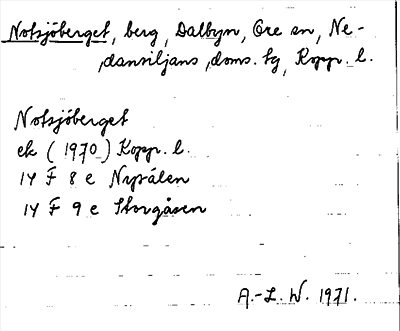 Notsjöberget, berg, Dalbyn, Ore sn, Ne-
dansiljans doms. tg, Kopp. l.
Notsjöberget
ek (1970) Kopp. l.
14 F 8 e Nypålen
14 F 9 e Storgåsen
A.-L. W. 1971.